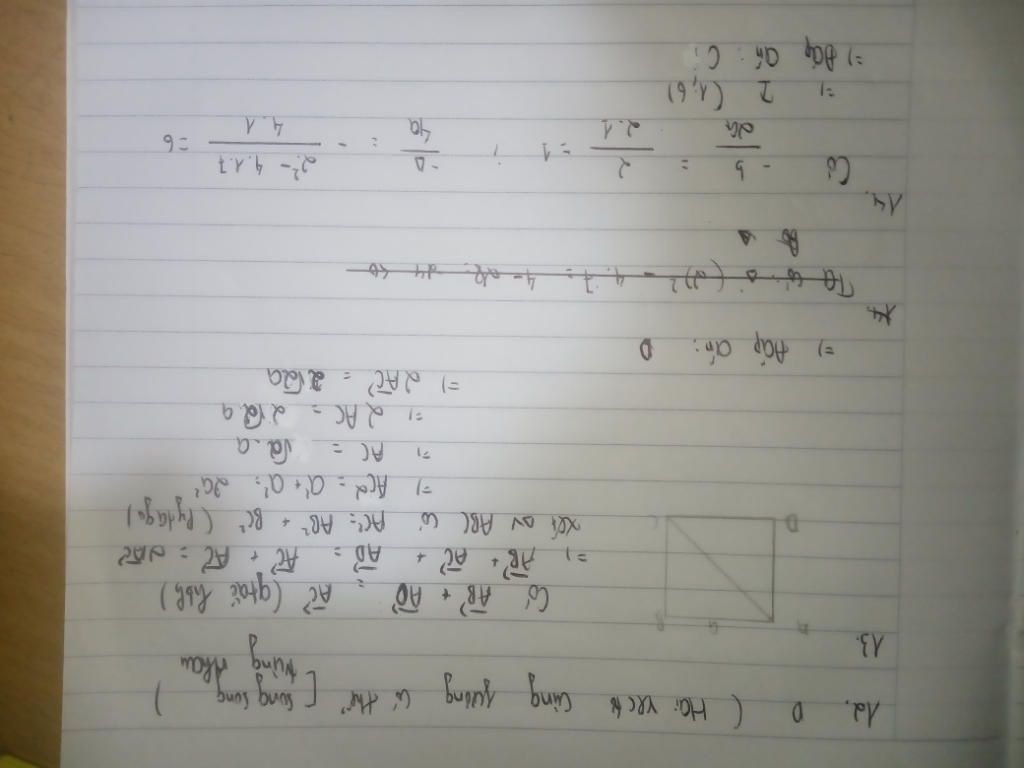 12. D (Hai vectơ cùng phương có thể [ song song
trùng nhau )
13.
A a B
D C
Có AB→ + AD→ = AC→ (qtắc hbh)
=> AB→ + AC→ + AD→ = AC→ + AC→ = 2AC→
Xét Δv ABC có AC² = AB² + BC² (Pytago)
=> AC² = a² + a² = 2a²
=> AC = √2.a
=> 2AC = 2√2.a
=> 2AC→ = 2√2a
=> Đáp án: D
14.
Ta có: Δ (2)² - 4.7 = 4 - 28 = -24 <0
14.
Có -b/2a = 2/2.1 = 1 , -Δ/4a = - 2²-4.1.7/4.1 = 6
=> I (1;6)
=> Đáp án: C